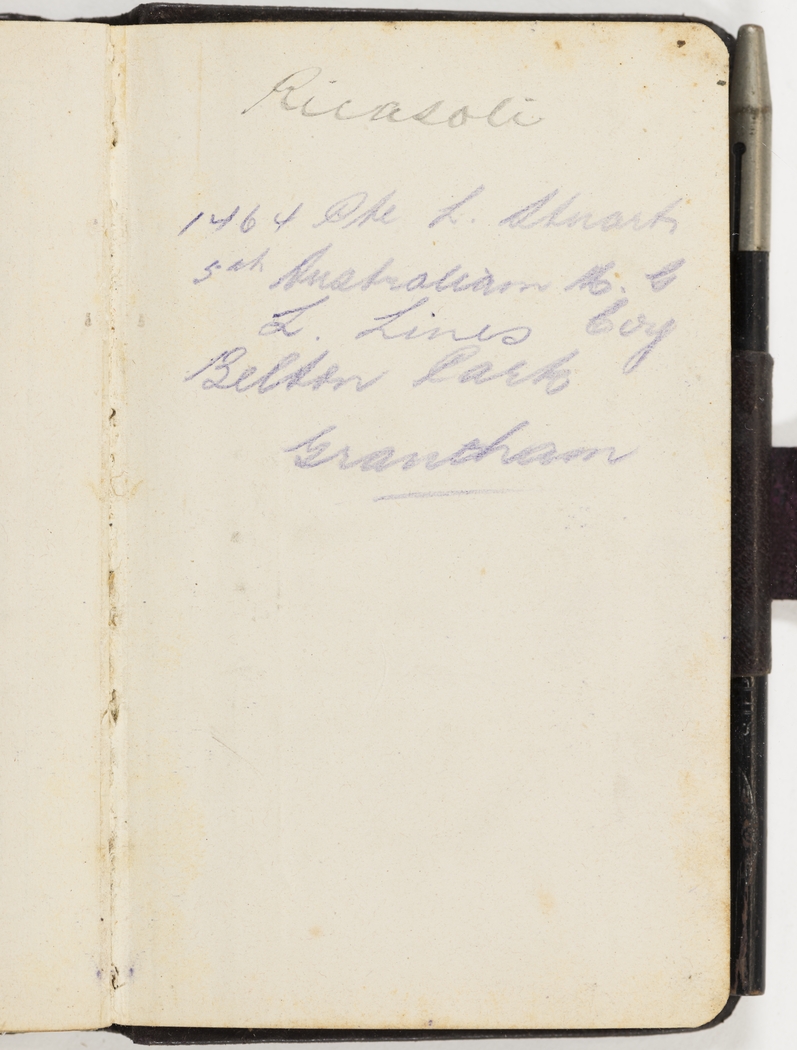 Ricasoli
1464 Pte L. Stuart
5th Australian M. G
L. Lines Coy
Belton Park
Grantham